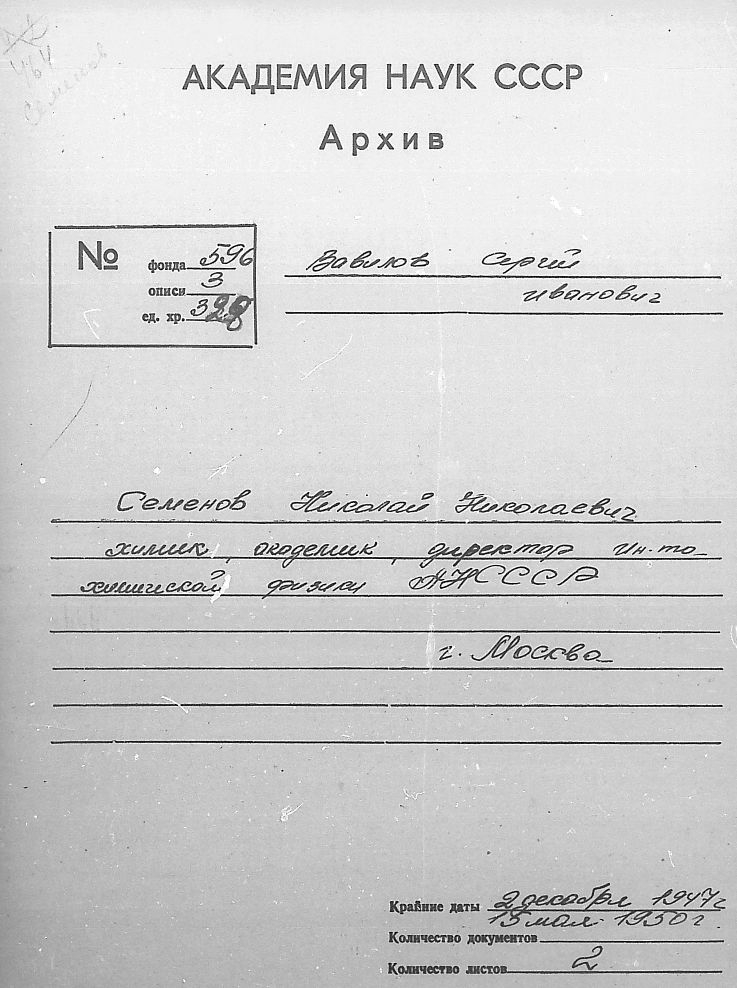 464
Семенов
АКАДЕМИЯ НАУК СССР
Архив
№
фонда 596
описи 3
ед. хр. 328
Вавилов Сергей
Иванович
Семенов Николай Николаевич
химик, академик, директор Ин-та
химической физики АН СССР
г. Москва
Крайние даты 2 декабря 1947 г
15 мая 1950 г.
Количество документов
Количество листов 2